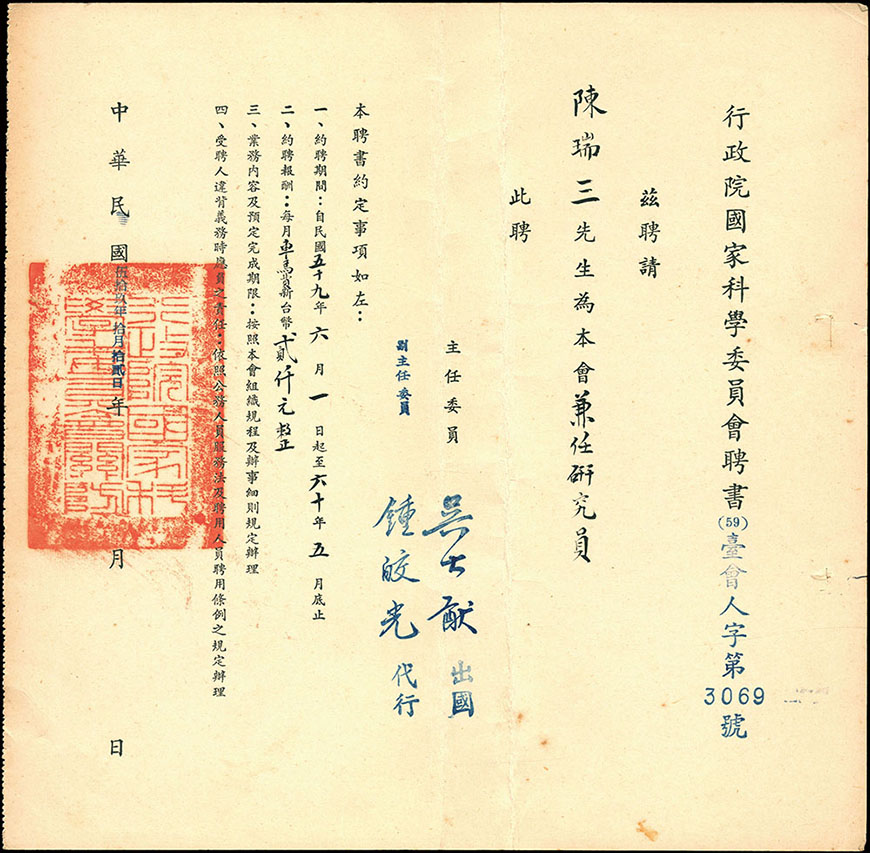 行政院國家科學委員會聘書(59)臺會人字第3069號
茲聘請
陳瑞三先生為本會兼任研究員
此聘
主任委員 吳大猷 出國
副主任委員 鍾皎光 代行
本聘書約定事項如左：
一、約聘期間：自民國五十九年六月一日起至六十年五月底止
二、約聘報酬：每月車馬費新台幣貳仟元整正
三、業務內容及預定完成期限：按照本會組織規程及辦事細則規定辦理
四、受聘人違背義務時應負之責任：依照公務人員服務法及聘用人員聘用條例之規定辦理
中華民國伍拾玖年拾月拾貳日年月日
行政院國家科學委員會關防